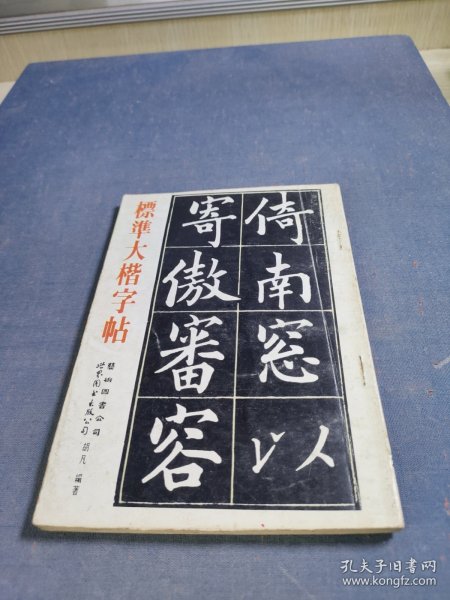 倚南窓以
寄傲審容
標準大楷字帖
藝術圖書公司
世界图书出版公司
胡凡 編著
孔夫子旧书网
www.kongfz.com